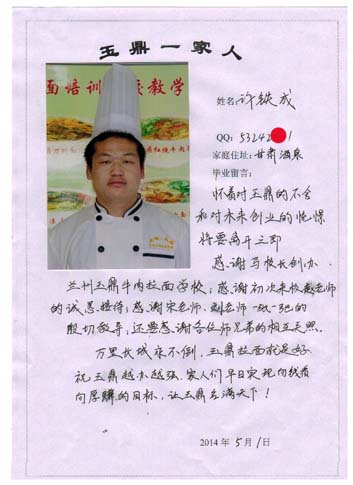 玉鼎一家人
面培训 教学
姓名:许铁成
QQ:53242 1
家庭住址:甘肃酒泉
毕业留言:
怀着对玉鼎的不舍
和对未来创业的憧憬
将要离开立即
感谢马校长创办
兰州玉鼎牛肉拉面学校;感谢初次来校戴老师
的诚恳接待;感谢宋老师、
殷切教导;还要感谢各位师兄弟的相互关照。
万里长城永不倒,玉鼎拉面就是好
祝玉鼎越办越强,家人们早日实现向钱看
向厚赚的目标,让玉鼎香满天下!
2014年5月1日